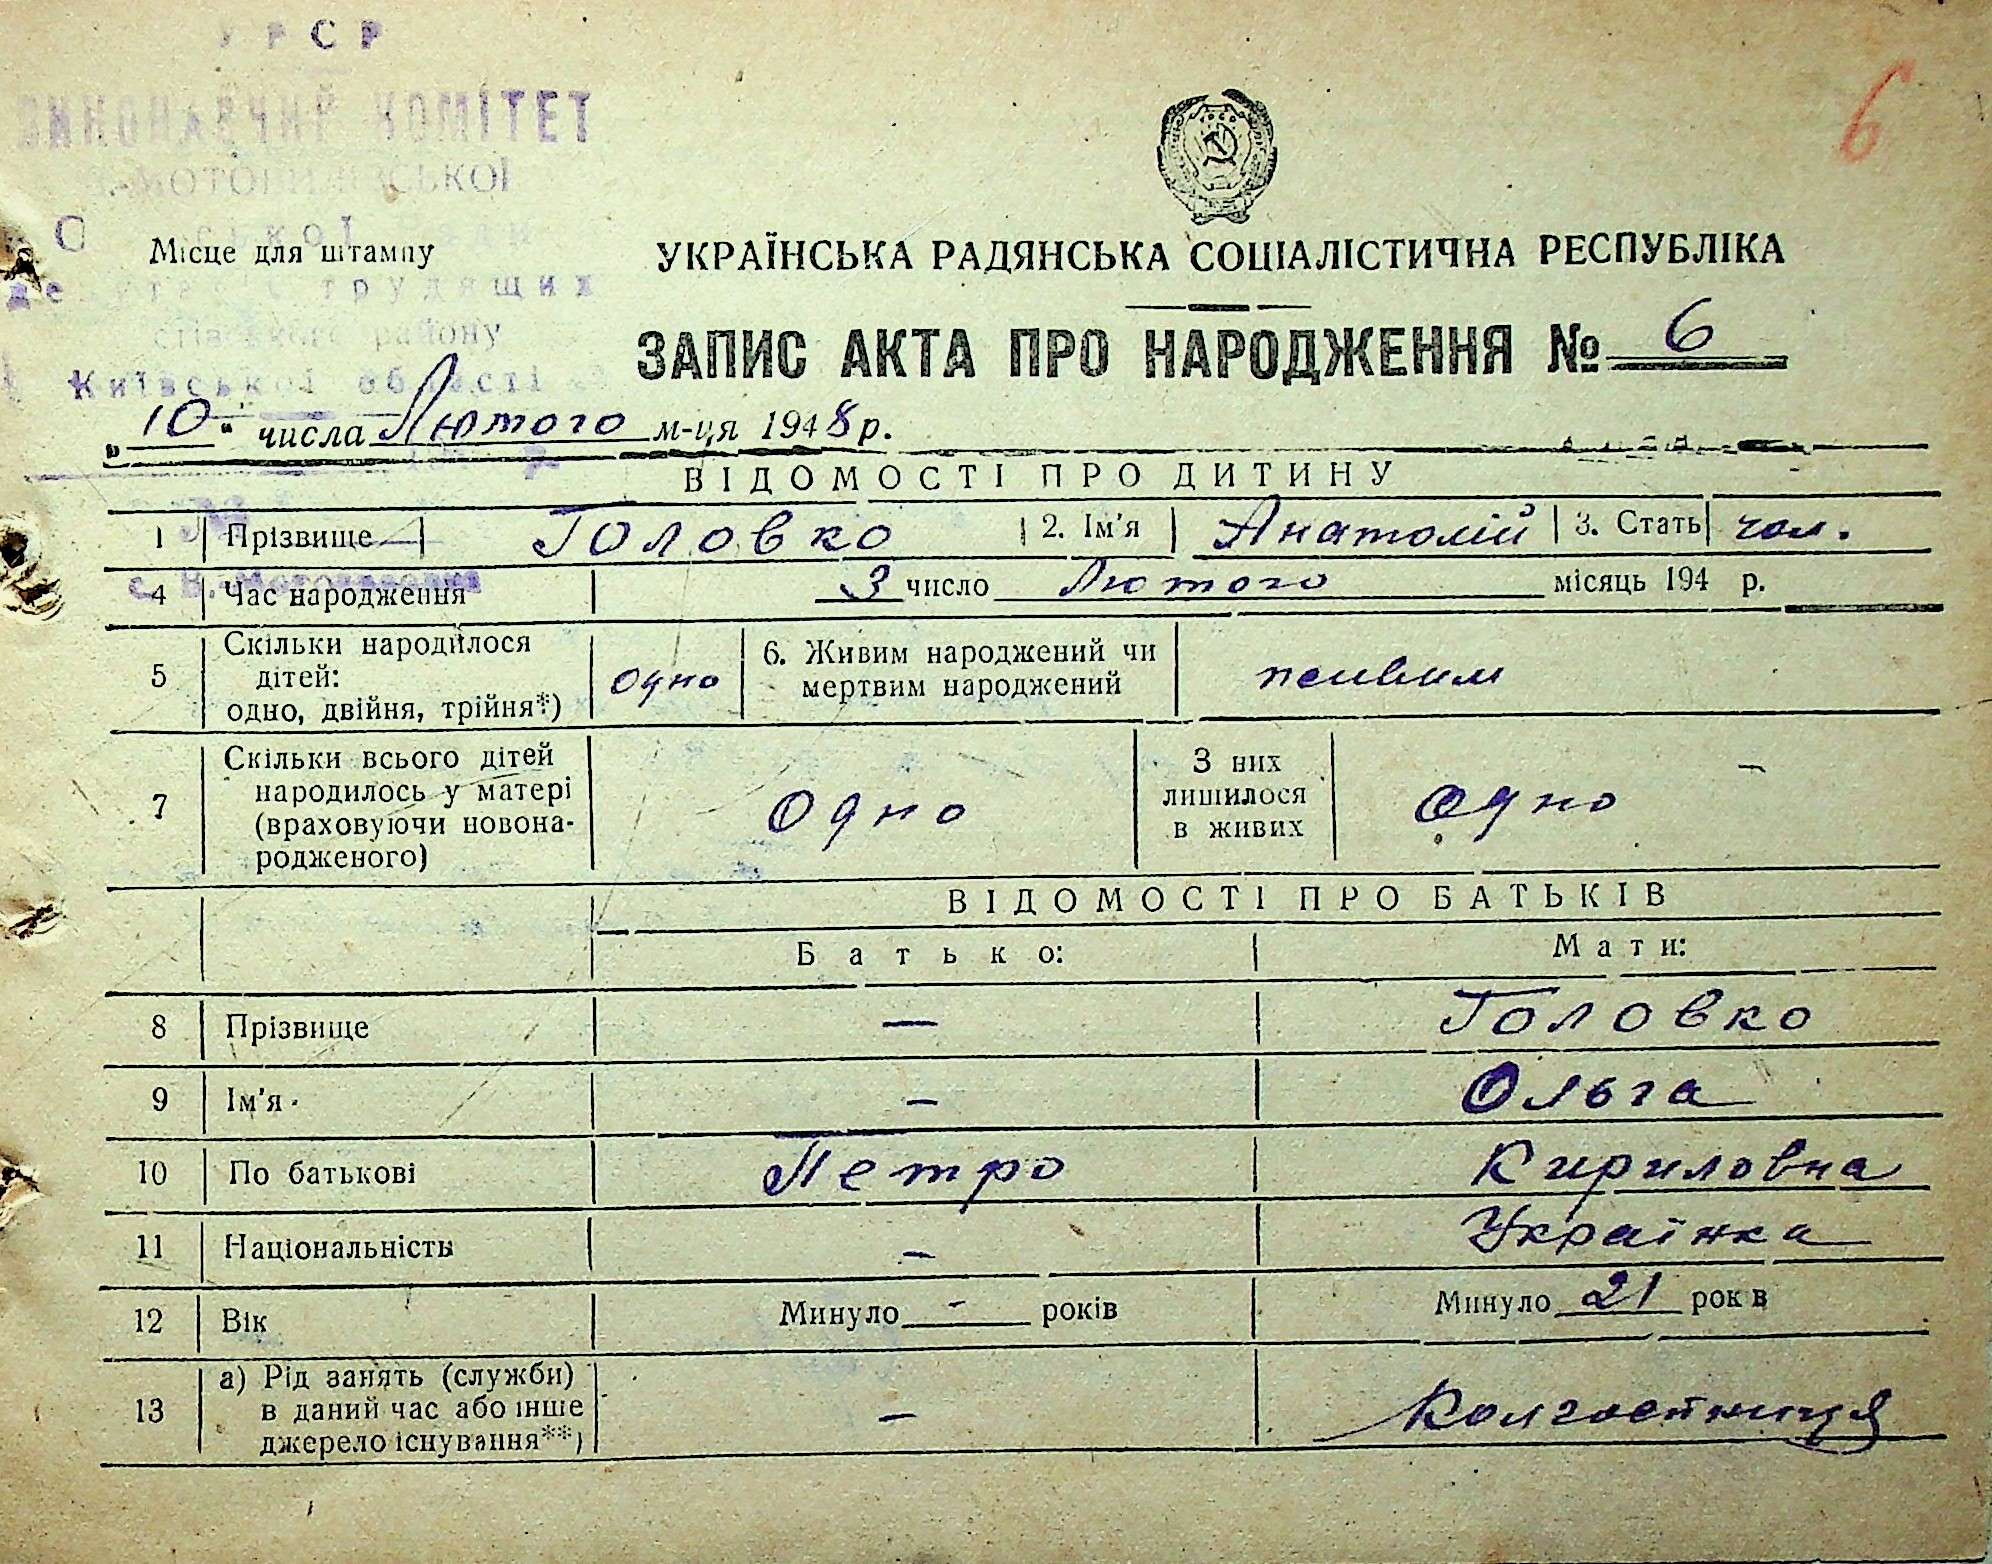 УРСР
ВИКОНАВЧИЙ КОМІТЕТ
Місце для штампу
трудящих
району
Київської області
6
УКРАЇНСЬКА РАДЯНСЬКА СОЦІАЛІСТИЧНА РЕСПУБЛІКА
ЗАПИС АКТА ПРО НАРОДЖЕННЯ № 6
„10“ числа Лютого м-ця 1948 р.
ВІДОМОСТІ ПРО ДИТИНУ
1 Прізвище Головко 2. Ім'я Анатолій 3. Стать чол.
4 Час народження 3 число Лютого місяць 194 р.
5 Скільки народилося дітей: одно, двійня, трійня*) одно 6. Живим народжений чи мертвим народжений живим
7 Скільки всього дітей народилось у матері (враховуючи новонародженого) Одно З них лишилося в живих Одно –
ВІДОМОСТІ ПРО БАТЬКІВ
Батько: Мати:
8 Прізвище — Головко
9 Ім'я — Ольга
10 По батькові Петро Кириловна
11 Національність — Українка
12 Вік Минуло - років Минуло 21 рок в
13 а) Рід занять (служби) в даний час або інше джерело існування**) — Колгоспниця